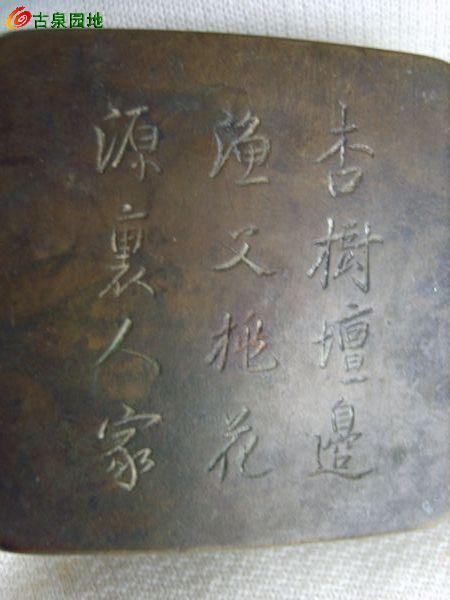 古泉园地
杏樹壇邊
漁父桃花
源裏人家